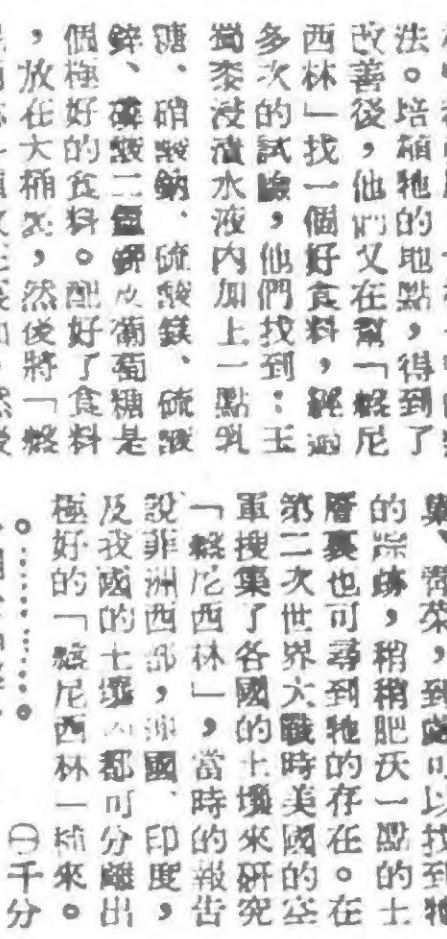 法。培植牠的地點,得到了
改善後,他們又在幫「盤尼
西林」找一個好食料,經過
多次的試驗,他們找到:玉
蜀黍浸漬水液內加上一點乳
糖、硝酸鈉、硫酸鎂、硫酸
鋅、磷酸二氫鉀及葡萄糖是
個極好的食料。配好了食料
,放在大桶裏,然後將「盤
到處可以找到牠
的踪跡,稍稍肥沃一點的土
層裏也可尋到牠的存在。在
第二次世界大戰時美國的空
軍搜集了各國的土壤來研究
「盤尼西林」,當時的報告
說非洲西部,
國、印度,
及我國的土壤內都可分離出
極好的「盤尼西林」種來。
㊀千分